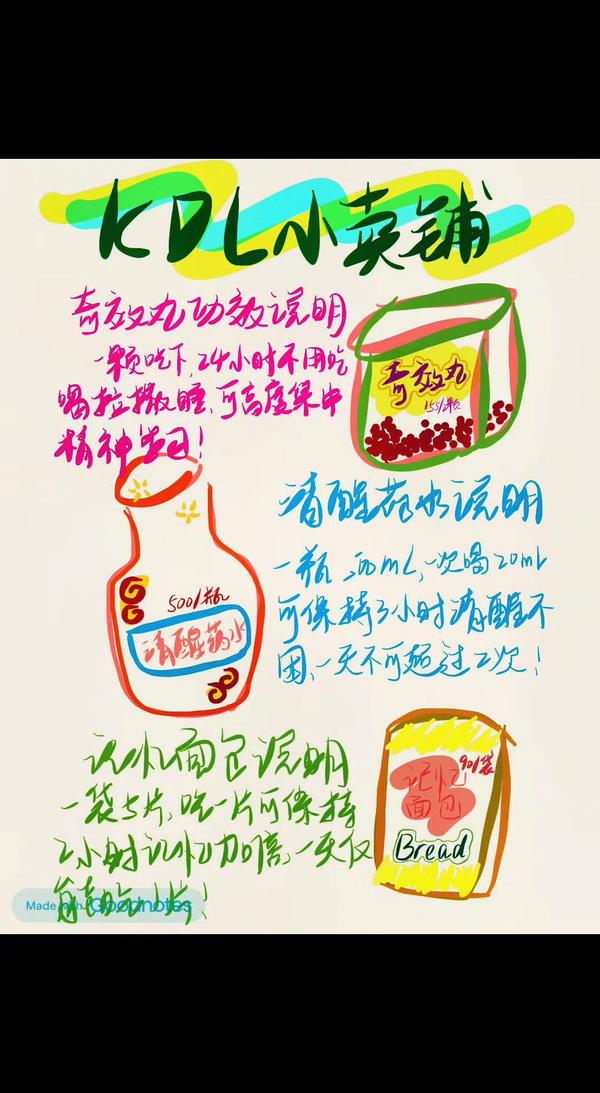 KDL小卖铺
奇效丸功效说明
一颗吃下,24小时不用吃
喝拉撒睡,可高度集中
精神
奇效丸
155/颗
清醒药水说明
一瓶 500mL,一次喝20mL
可保持3小时清醒不
困,一天不可超过2次!
500/瓶
清醒药水
记忆面包说明
一袋5片,吃一片可保持
2小时记忆力加倍,一天仅
能吃1片!
90/袋
记忆
面包
Bread
Made with Goodnotes